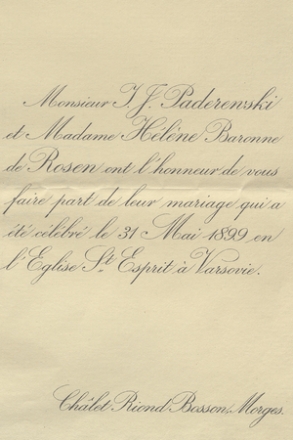 Monsieur I. J. Paderewski
et Madame Hélène Baronne
de Rosen ont l'honneur de vous
faire part de leur mariage qui a
été célébré le 31 Mai 1899 en
l'Eglise St. Esprit à Varsovie.
Châlet Riond-Bosson, Morges.